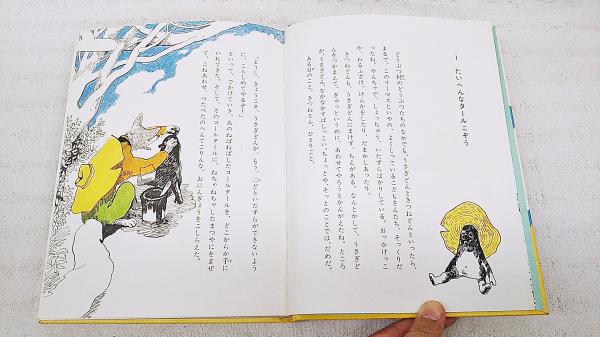 1 たいへんなタールこぞう
どうぶつ村のどうぶつたちのなかでも、うさぎどんときつねどんといったら、
まるで、このリーマスじいやの、よくしっているこどもさんたち、そっくりだ
ったね。やんちゃで、しょっちゅう、いたずらばかりしている。おっかけっこ
や、わるふざけ、けんかをしたり、だましあったり。
きつねどんも、うさぎどんにまけず、ちえがある。なんとかして、うさぎど
んをつかまえて、ぎゅっというめに、あわせてやろうとかんがえたね。ところ
が、うさぎどん、なかなかすばしっこい。ちょっとや、そっとのことでは、だめだ。
ある日のこと。きつねどん、ひとりごと。
「ようし、ちょうこそ、うさぎどんが、もう、二どといたずらができないよう
に、こらしめてやるぞ!」
といって、でかけていき、あのねばねばしたコールタールを、どこからか手に
いれてきた。そして、そのコールタールに、ねちゃねちゃしたまつやにをまぜ
て、こねあわせ、ったべたのへんてこりんな、おにんぎょうをこしらえた。